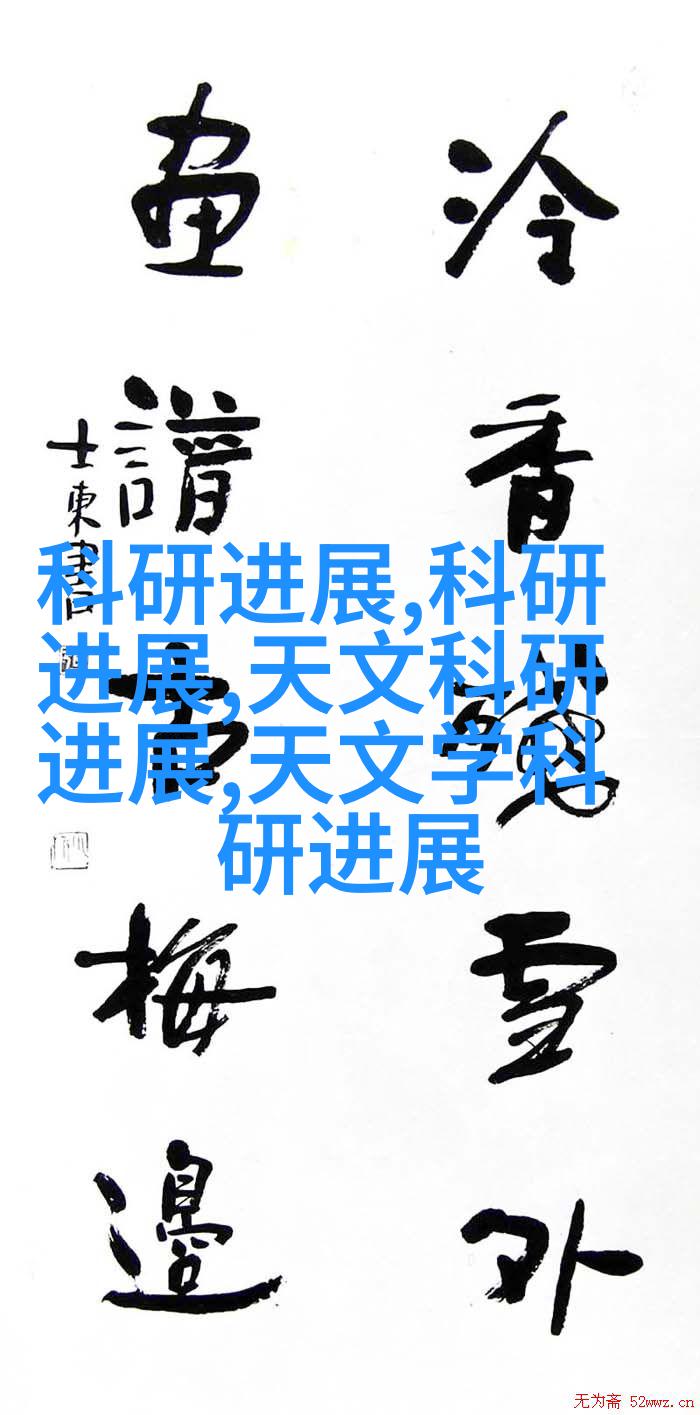 泠香雪外
畫譜梅邊
士東書
科研进展,科研
进展,天文科研
进展,天文学科
研进展
无为斋 52wwz.cn